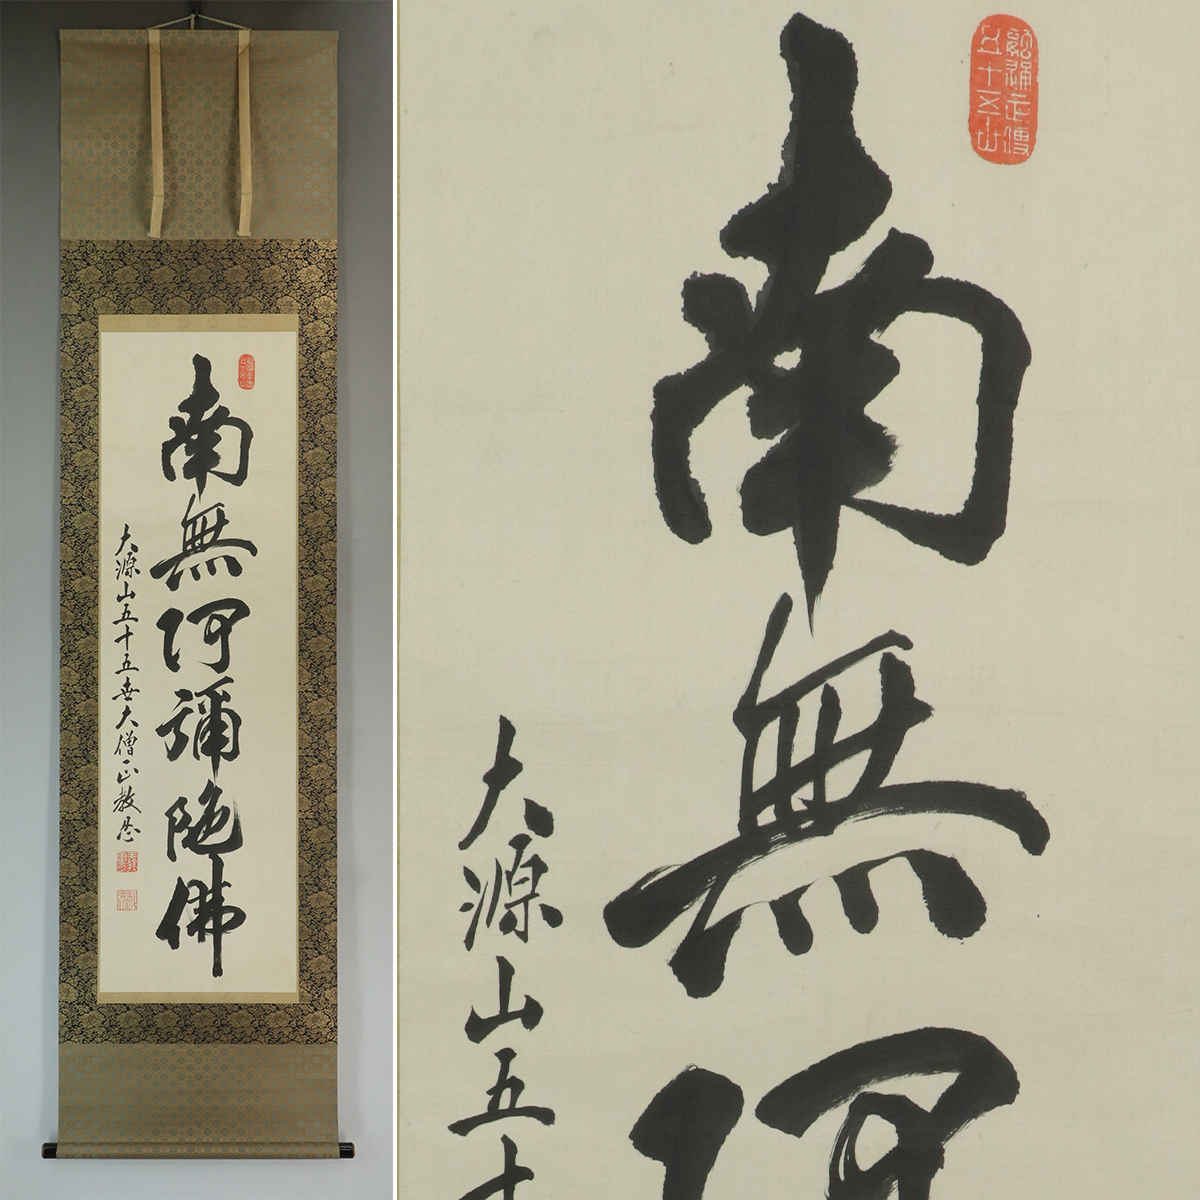 南無阿彌陀佛
大源山五十五世大僧正教忍
融通正傳
五十五山
南無阿
大源山五十